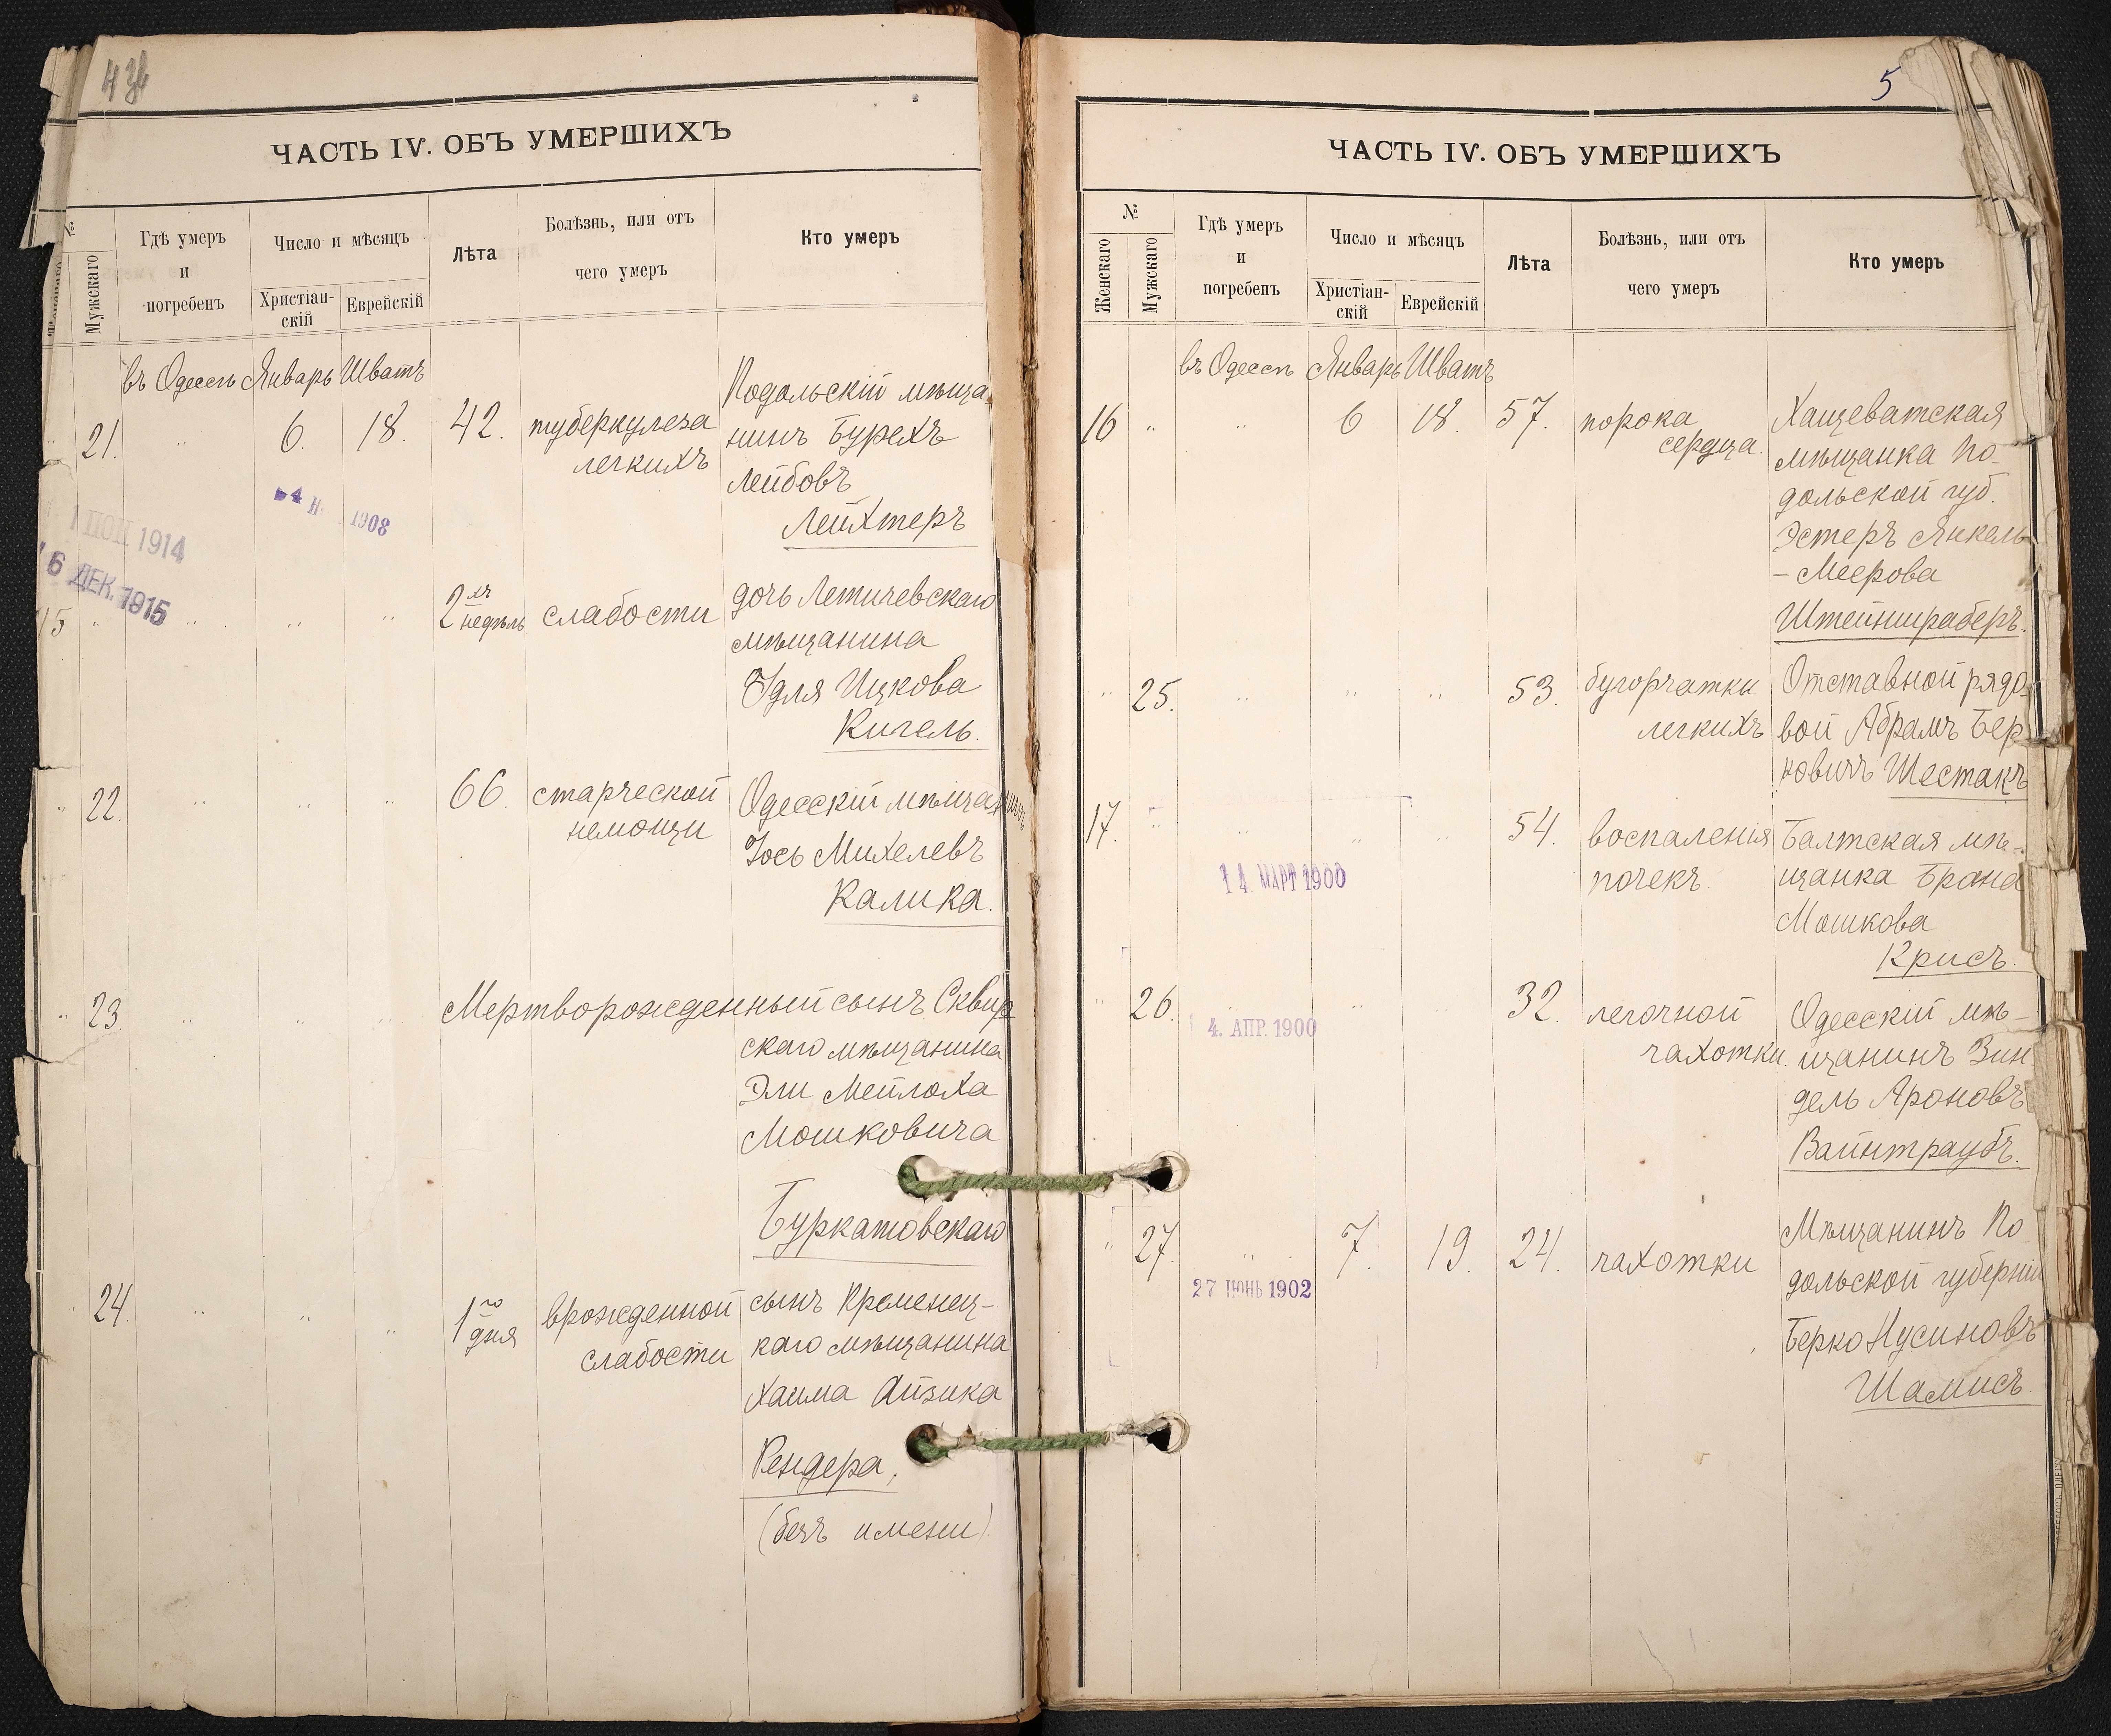 5
ЧАСТЬ IV. ОБЪ УМЕРШИХЪ
№
Мужскаго
Гдѣ умеръ
и
погребенъ
Число и мѣсяцъ
Христіан-
скій
Еврейскій
Лѣта
Болѣзнь, или отъ
чего умеръ
Кто умеръ
въ Одессѣ Январь Шватъ
21. " 6. 18. 42. туберкулеза
легкихъ
Подольскій мѣща
нинъ Бурехъ
Лейбовъ
Лейхтеръ
1908
1914
6 ДЕК. 1915
15 " " " " 2хъ недѣль слабости
дочь Летичевскаго
мѣщанина
Удля Ицкова
Кигель.
" 22. " " " 66. старческой
немощи
Одесскій мѣщанинъ
Іось Михелевъ
Калика.
" 23. " " " Мертворожденный сынъ Сквир
скаго мѣщанина
Эли Мейлоха
Мошковича
Буркатовскаго
24. " " " 1го дня врожденной
слабости
сынъ Кременец-
каго мѣщанина
Хаима Айзика
Рендера,
(безъ имени)
ЧАСТЬ IV. ОБЪ УМЕРШИХЪ
№
Женскаго
Мужскаго
Гдѣ умеръ
и
погребенъ
Число и мѣсяцъ
Христіан-
скій
Еврейскій
Лѣта
Болѣзнь, или отъ
чего умеръ
Кто умеръ
въ Одессѣ Январь Шватъ
16 " " 6 18. 57. порока
сердца.
Хащеватская
мѣщанка По-
дольской губ.
Эстеръ Янкель
- Меерова
Штейншраберъ.
" 25. " " " 53. бугорчатки
легкихъ
Отставной рядо-
вой Абрамъ Бер
ковичъ Шестакъ
17. " " " " 54. воспаленія
почекъ
Балтская мѣ-
щанка Брана
Мошкова
Крисъ.
14. МАРТ 1900
" 26. " " 32. легочной
чахотки.
Одесскій мѣ-
щанинъ Зин
дель Ароновъ
Вайнтраубъ.
4. АПР. 1900
" 27. " 7. 19. 24. чахотки
Мѣщанинъ По
дольской губерніи
Берко Нусиновъ
Шамисъ.
27 ІЮНЬ 1902